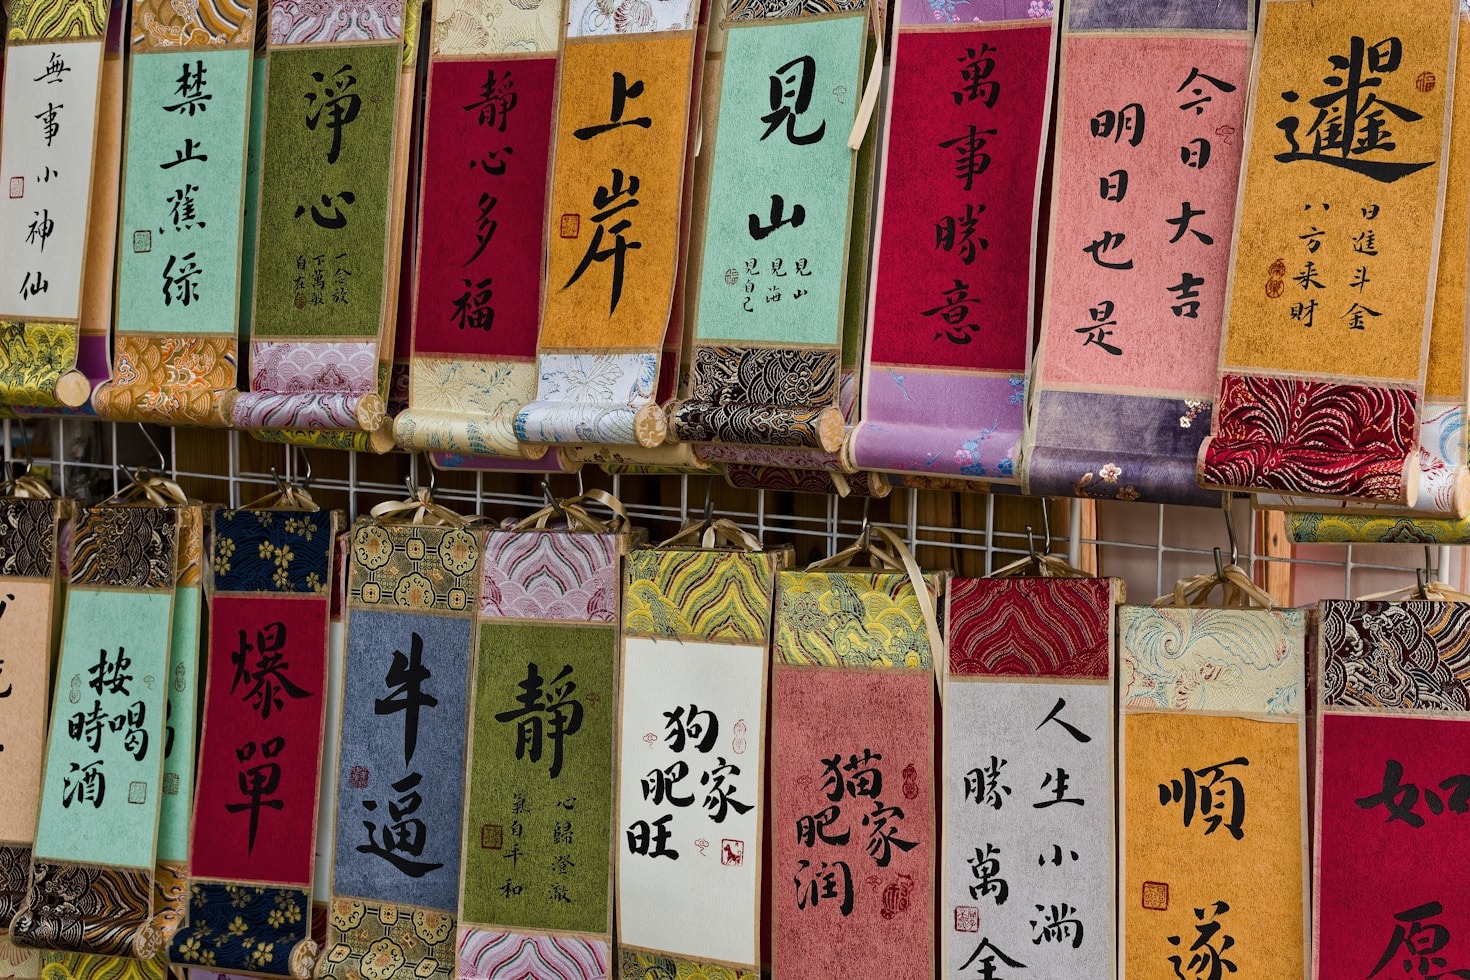 無事小神仙
禁止蕉綠
淨心
一念放
下萬般
自在
靜心多福
上岸
見山
見山
見海
見自己
萬事勝意
今日大吉
明日也是
日進斗金
八方来財
按時喝酒
爆單
牛逼
靜
心歸澄澈
氣自平和
狗家肥旺
猫家肥润
人生小滿
勝萬全
順遂
如愿